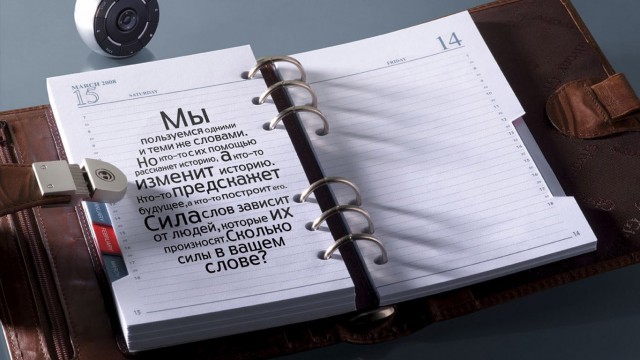 MARCH 2008
15
SATURDAY
Мы
пользуемся одними
и теми же словами.
Но кто-то с их помощью
расскажет историю, а кто-то
изменит историю.
Кто-то предскажет
будущее, а кто-то построит его.
Сила слов зависит
от людей, которые их
произносят. Сколько
силы в вашем
слове?
15
FRIDAY
14
14